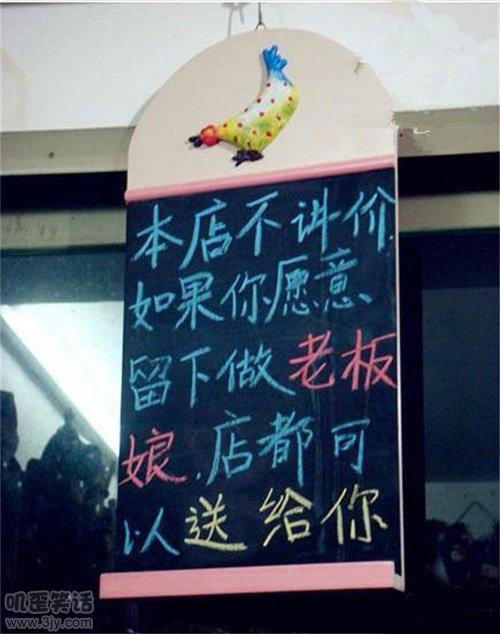 本店不讲价.
如果你愿意
留下做老板
娘.店都可
以送给你
叽歪笑话
www.3jy.com